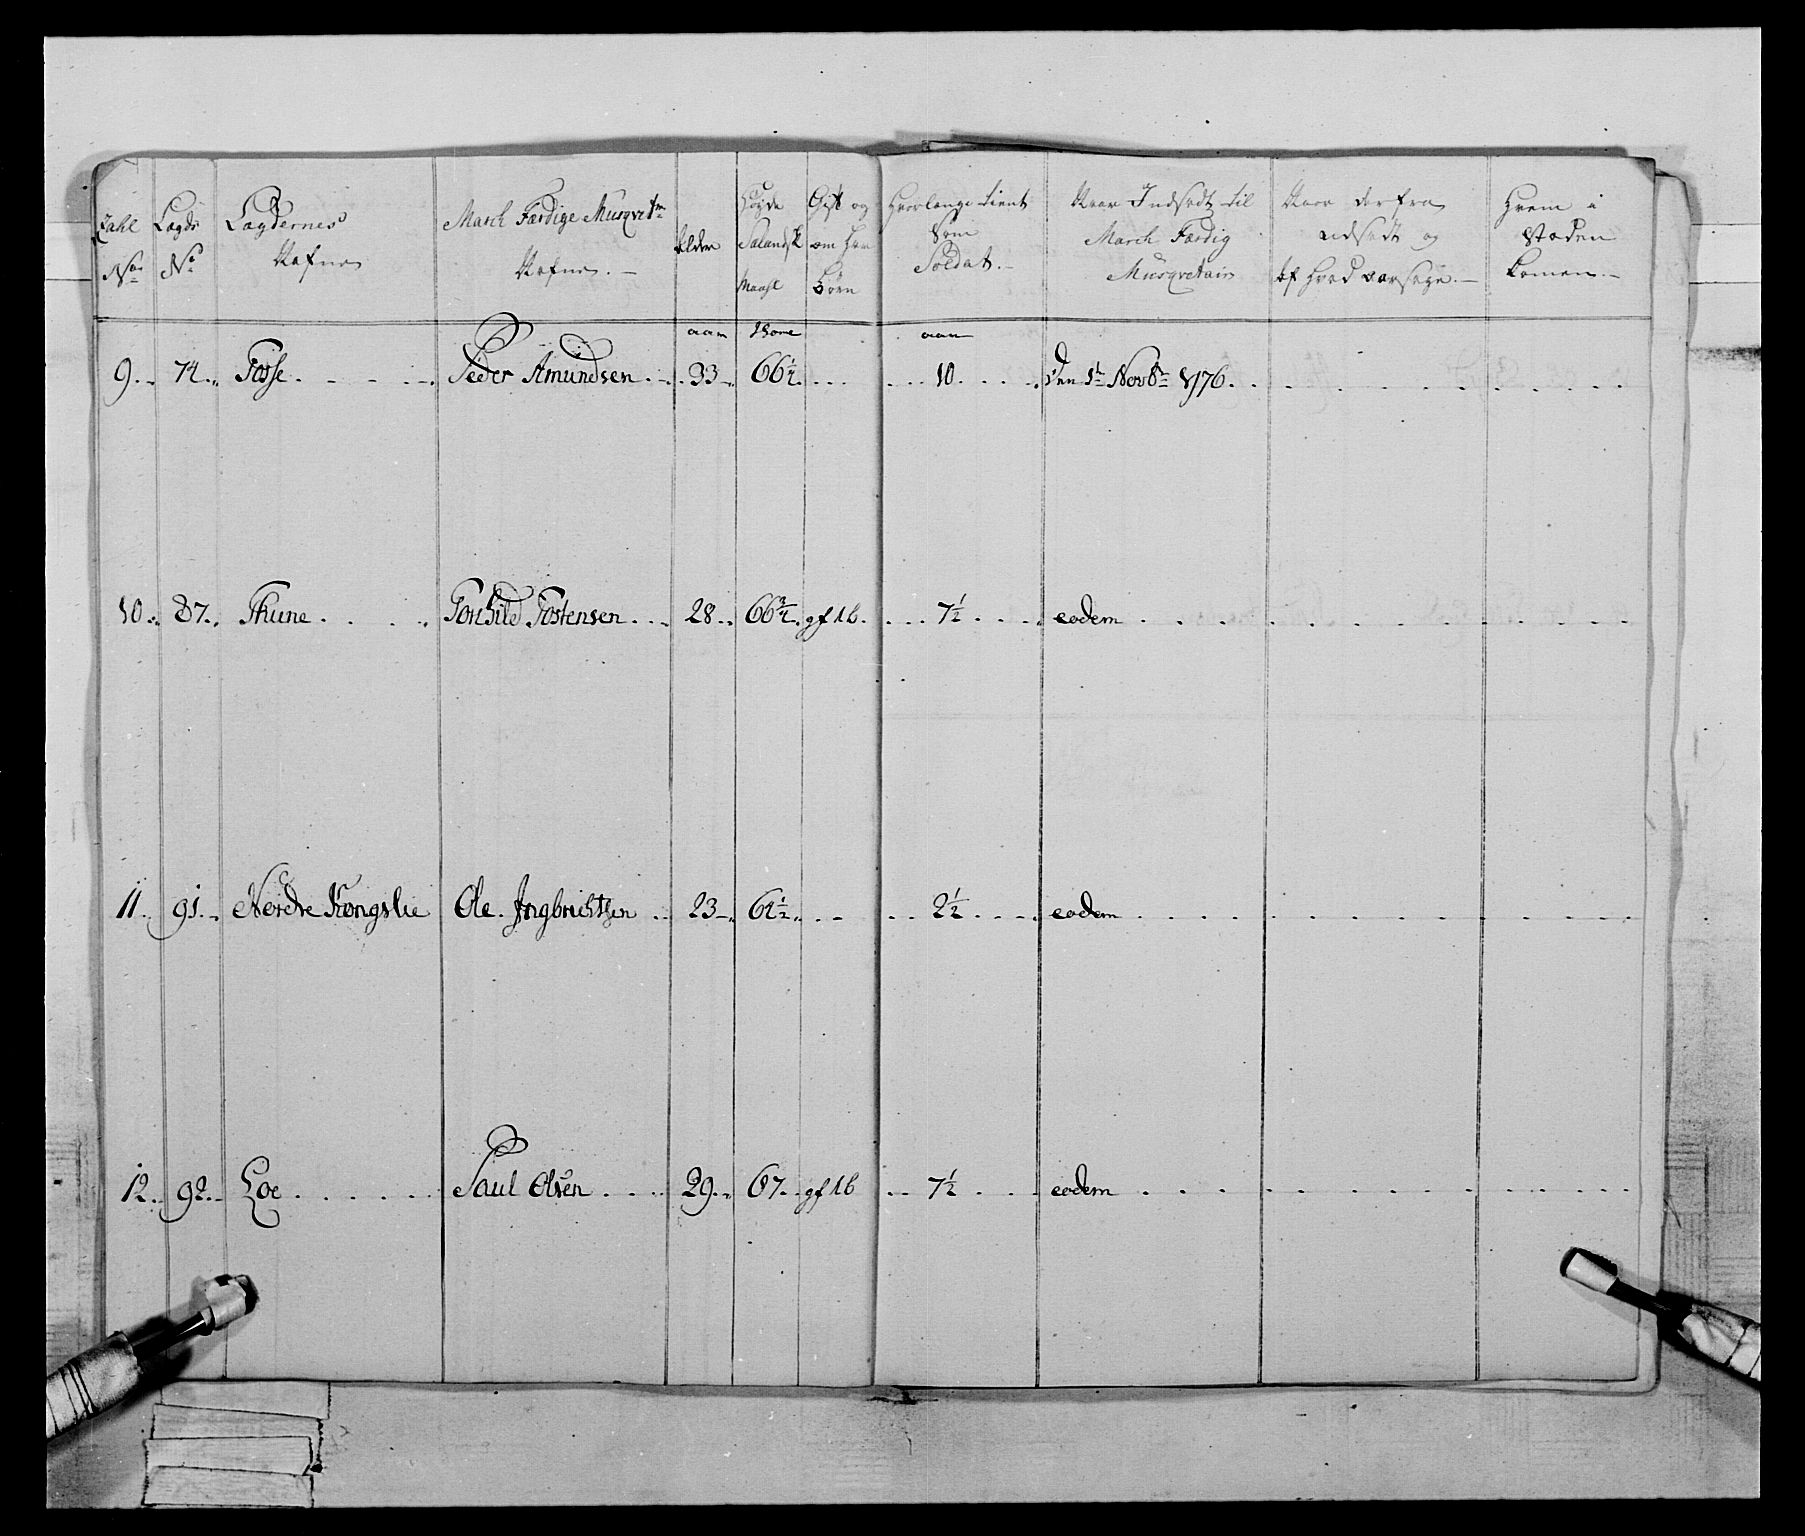 Zahl No
Lægds No
Lægdernes Nafne
March Færdige Musqvetrs Nafne. —
Alder
Høyde Sælandsk Maahl
Gift og om har Børn
Hvorlænge tient som Soldat. —
Naar Indsadt til March Færdig Musqvetair
Naar derfra udsadt og af hvad aarsage. —
Hvem i Støden komen. —
aar Tome aar
9. 74. Fosse. Peder Amundsen. 33 66½ 10. den 1te Novbr 1776.
10. 87. Thune. Torchild Tostensen. 28. 66¾ gf 1b. 7½ eodem
11. 91. Nerdre Kongslie Ole Ingbrichtsen 23 64½ 2½ eodem
12. 92. Loe. Paul Olsen. 29. 67. gf 1b 7½ eodem